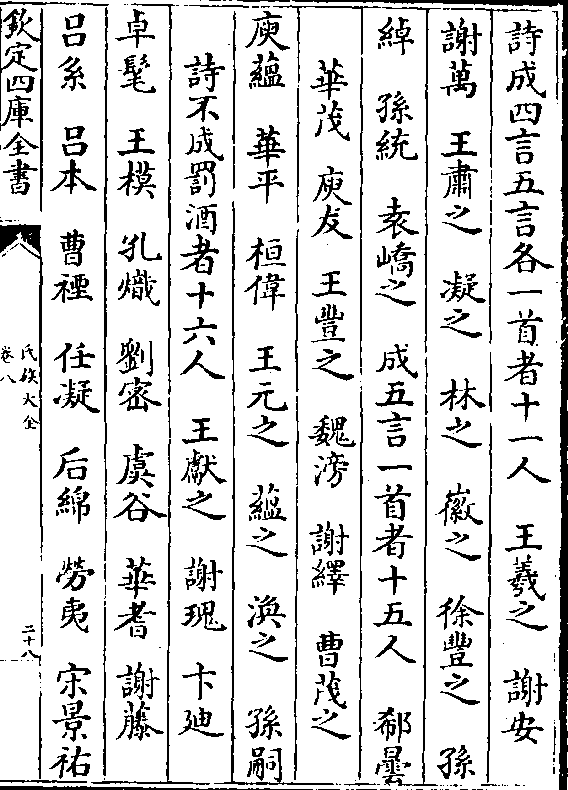 詩成四言五言各一首者十一人　王羲之　謝安
謝萬　王肅之　凝之　林之　徽之　徐豐之　孫
綽　孫統　袁嶠之　成五言一首者十五人　郗曇
華茂　庾友　王豐之　魏滂　謝繹　曹茂之
庾蘊　華平　桓偉　王元之　蘊之　渙之　孫嗣
詩不成罰酒者十六人　王獻之　謝瑰　卞廸
卓髦　王模　孔熾　劉密　虞谷　華耆　謝藤
呂系　呂本　曹禋　任凝　后綿　勞夷　宋景祐
欽定四庫全書
氏族大全
卷八
二十八